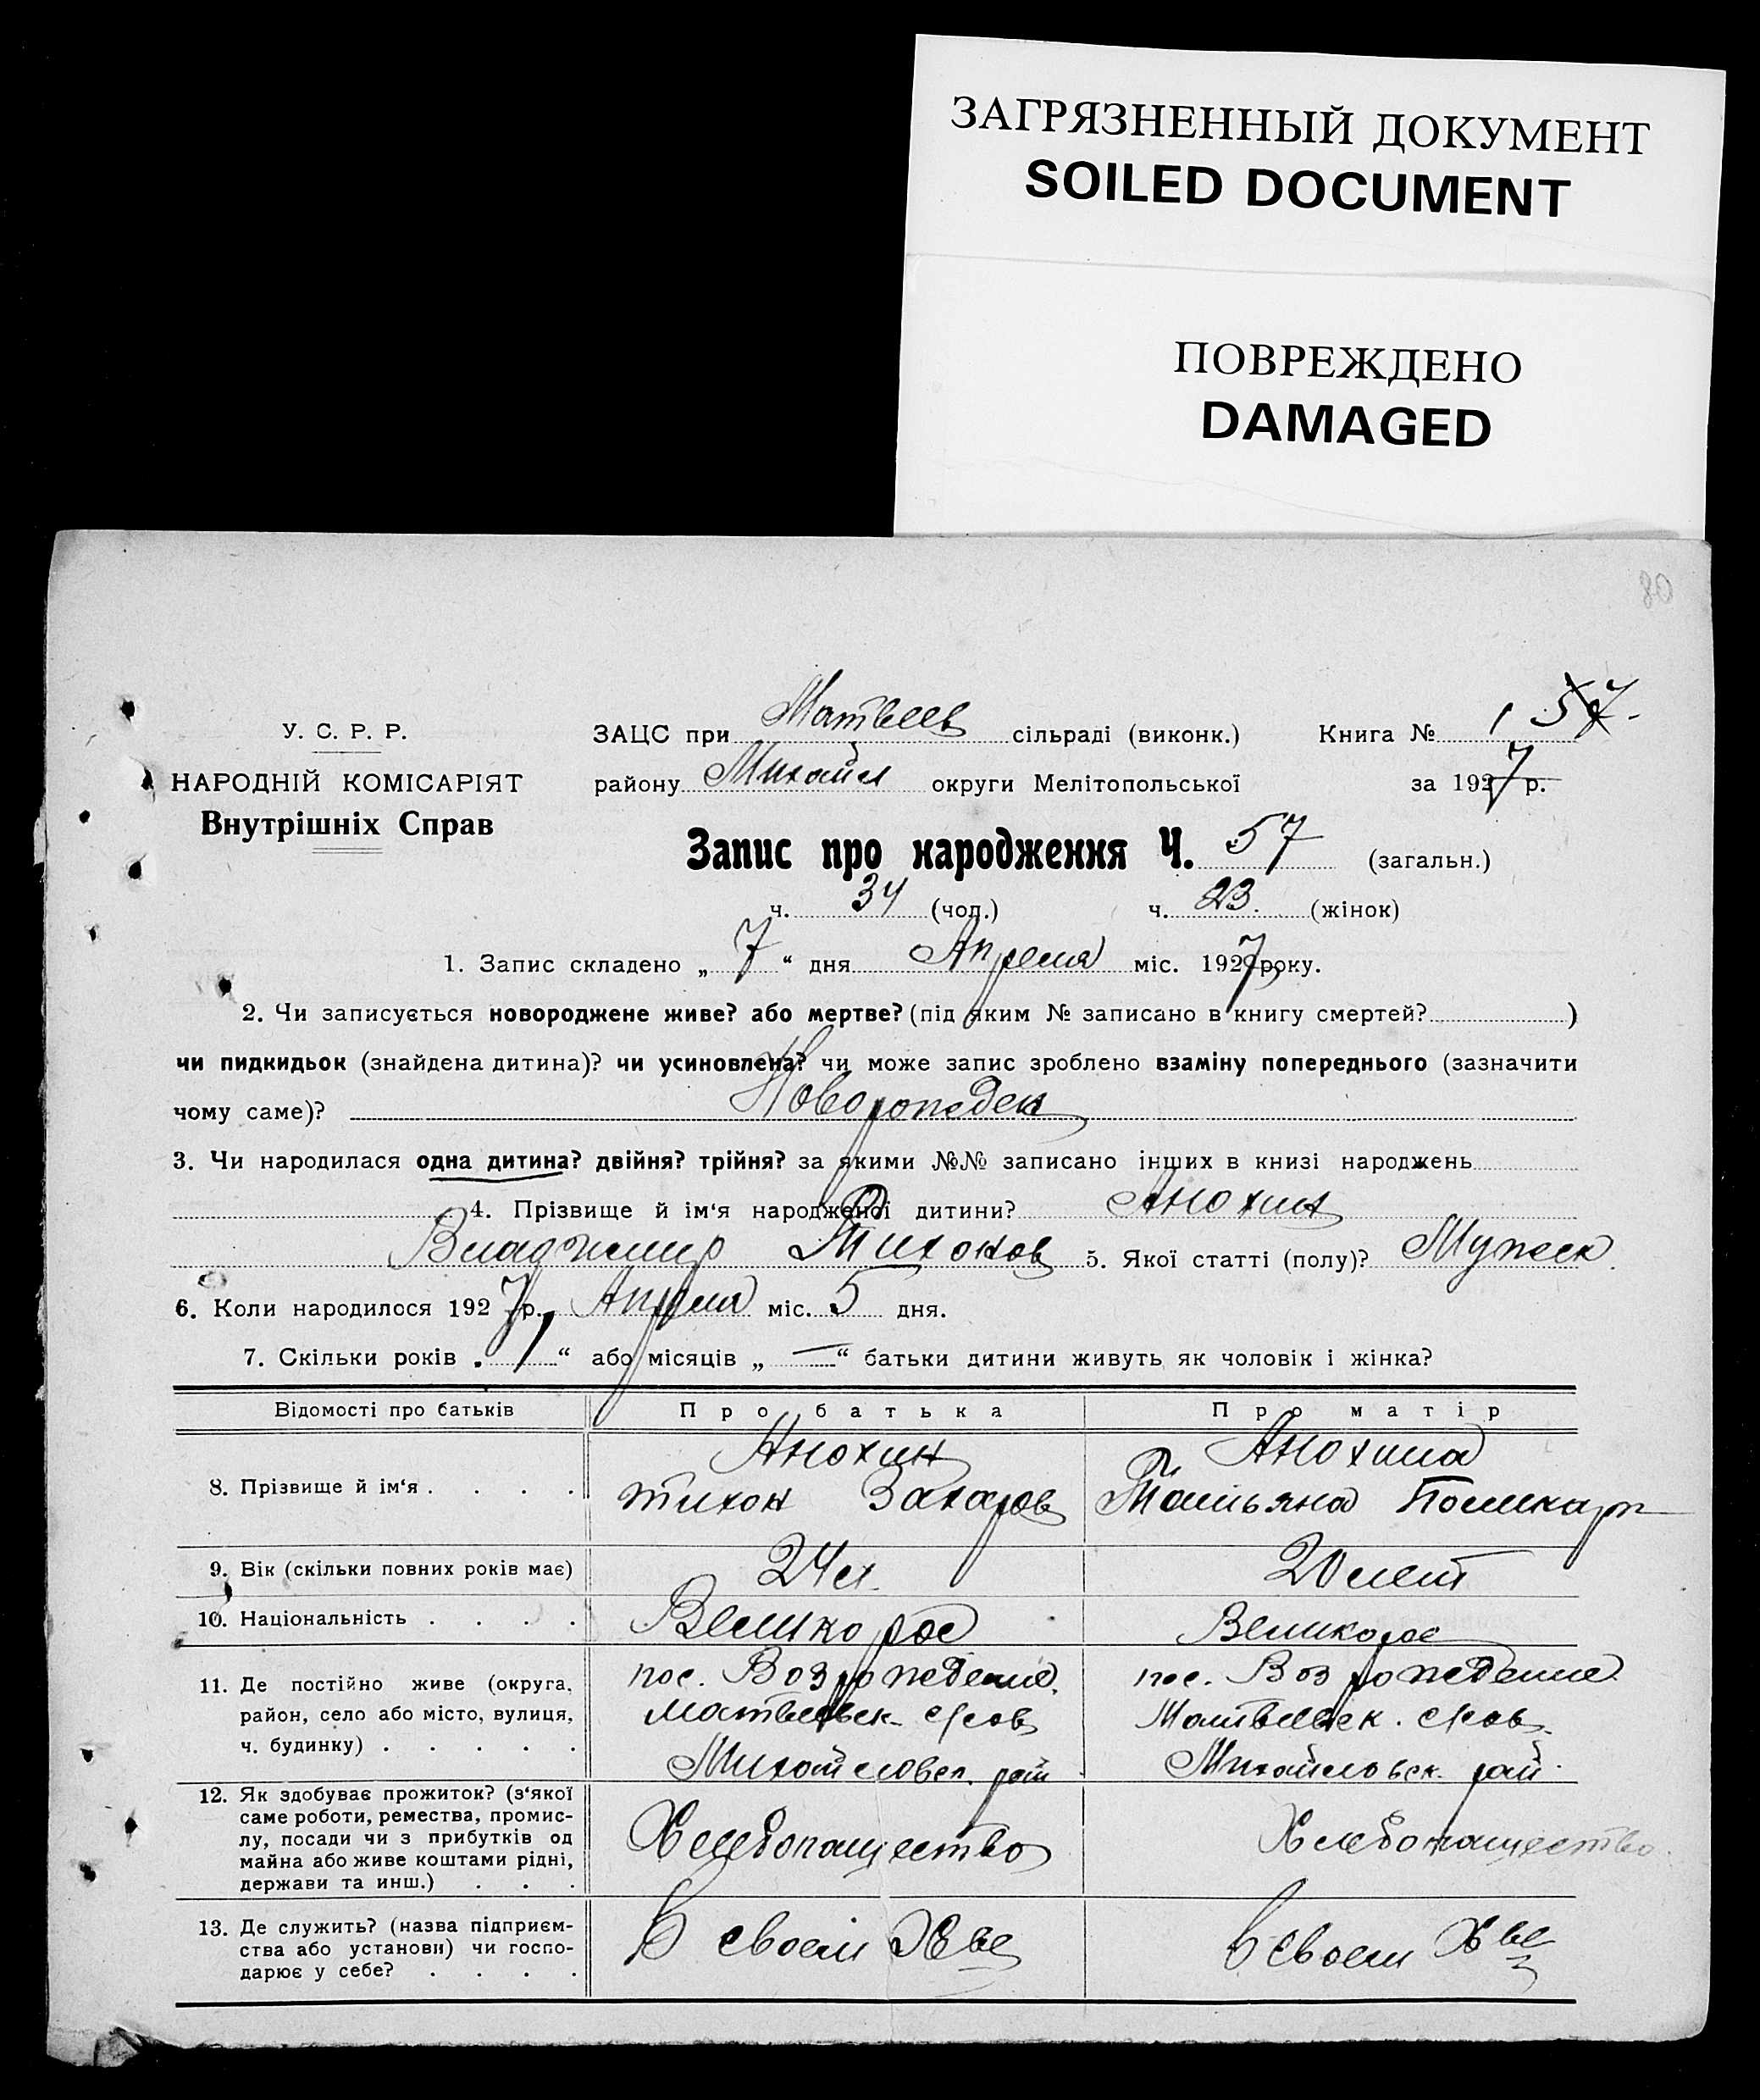 ЗАГРЯЗНЕННЫЙ ДОКУМЕНТ
SOILED DOCUMENT
ПОВРЕЖДЕНО
DAMAGED
80
У. С. Р. Р.
НАРОДНІЙ КОМІСАРІЯТ
Внутрішніх Справ
ЗАЦС при Матвеев сільраді (виконк.) Книга № 1 57
району Михайл округи Мелітопольської за 1927 р.
Запис про народження Ч. 57 (загальн.)
ч. 34 (чол.) ч. 23. (жінок)
1. Запис складено „ 7 “ дня Апреля міс. 1927 року.
2. Чи записується новороджене живе? або мертве? (під яким № записано в книгу смертей? )
чи пидкидьок (знайдена дитина)? чи усиновлена? чи може запис зроблено взаміну попереднього (зазначити
чому саме)? Новорожден
3. Чи народилася одна дитина? двійня? трійня? за якими №№ записано інших в книзі народжень
4. Прізвище й ім‘я народженої дитини? Анохин
Владимир Тихонов 5. Якої статті (полу)? Мужеск.
6. Коли народилося 1927 р. Апреля міс. 5 дня.
7. Скільки років „ 1 “ або місяців „ — “ батьки дитини живуть як чоловік і жінка?
Відомості про батьків Про батька Про матір
8. Прізвище й ім‘я . . . .
Анохин
Тихон Захаров
Анохина
Татьяна Поликарп
9. Вік (скільки повних років має) 24 л. 20 лет
10. Національність . . . . Великорос Великорос
11. Де постійно живе (округа,
район, село або місто, вулиця,
ч. будинку) . . . . .
пос. Возрождение
Матвеевск. с/сов
Михайловск. рай
пос. Возрождение
Матвеевск. с/сов.
Михайловск. рай.
12. Як здобуває прожиток? (з‘якої
саме роботи, ремества, промис-
лу, посади чи з прибутків од
майна або живе коштами рідні,
держави та инш.) . . .
Хлебопашество
Хлебопашество
13. Де служить? (назва підприєм-
ства або установи) чи госпо-
дарює у себе? . . . .
В своем Х-ве
В своем Х-ве